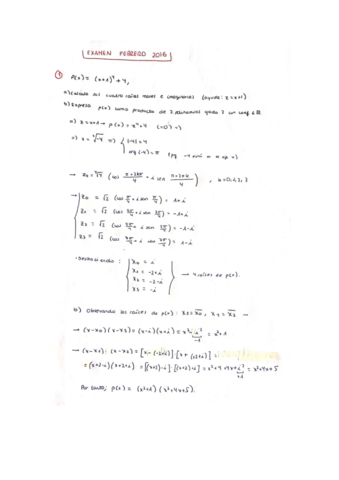 EXAMEN FEBRERO 2016
① P(x) = (x+1)⁴ + 4,
a) Calcula sus cuatro raíces reales e imaginarias (ayuda: z=x+1)
b) Expresa p(x) como producto de 2 polinomios grado 2 con coef ∈ ℝ
a) z = x+1 → p(x) = z⁴+4 (=0) →
→ z = ⁴√-4 ⇒ { |-4| = 4
arg(-4) = π
→ z_k = ⁴√4 (cos (π+2kπ)/4 + i sen (π+2kπ)/4), k=0,1,2,3
→ z₀ = √2 (cos π/4 + i sen π/4) = 1+i
z₁ = √2 (cos 3π/4 + i sen 3π/4) = -1+i
z₂ = √2 (cos 5π/4 + i sen 5π/4) = -1-i
z₃ = √2 (cos 7π/4 + i sen 7π/4) = 1-i
x₀ = i
x₁ = -2+i
x₂ = -2-i
x₃ = -i
→ 4 raíces de p(x).
b) Observando las raíces de p(x): x₃ = x̄₀, x₁ = x̄₂ →
→ (x-x₀)(x-x₃) = (x-i)(x+i) = x² - i² = x²+1
-1
→ (x-x₁)·(x-x₂) = [x-(-2+i)]·[x+(+2+i)] =
= (x+2-i)(x+2+i) = [(x+2)-i]·[(x+2)+i] = x²+4+4x-i² = x²+4x+5
+1
Por tanto, p(x) = (x²+1)(x²+4x+5).